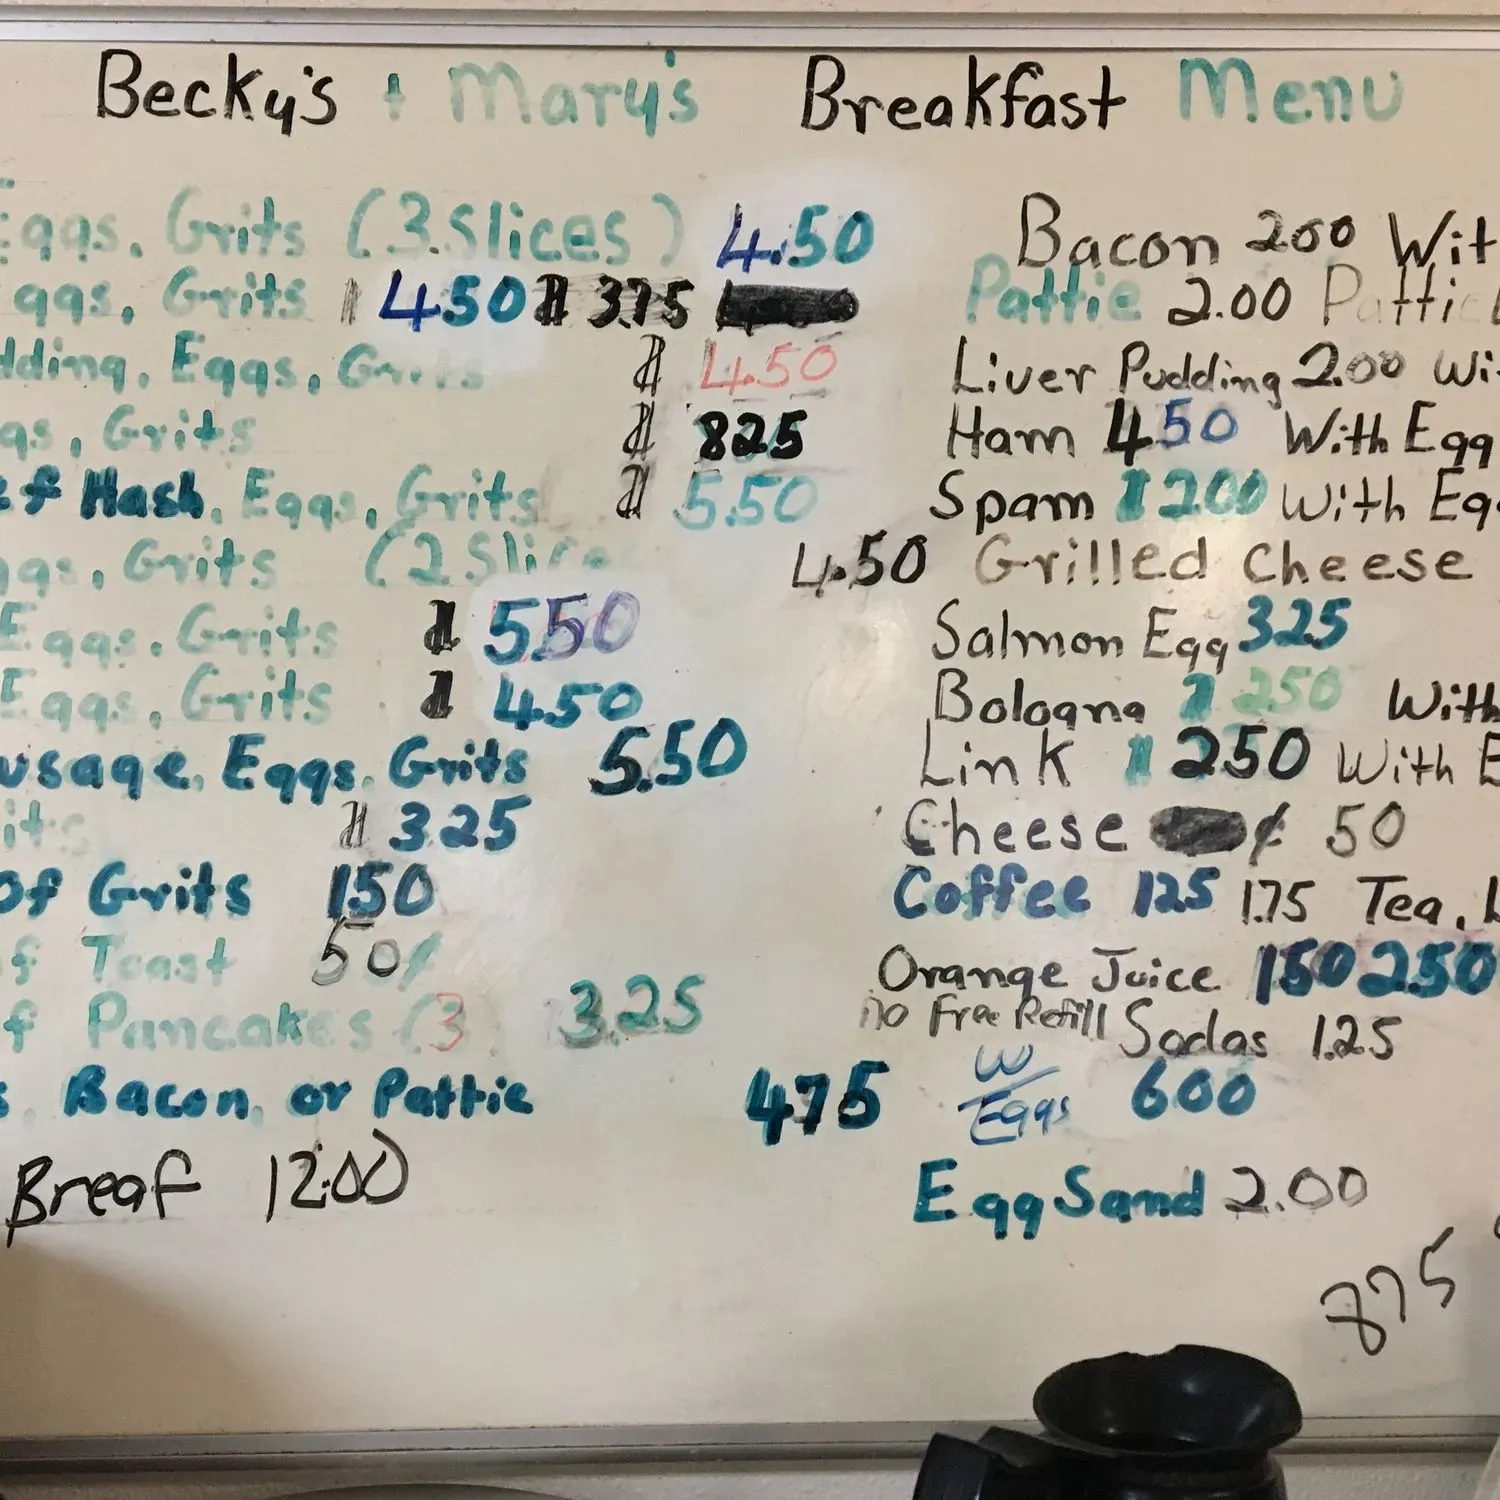 Becky's + Mary's Breakfast Menu
Eggs, Grits (3 Slices) 4.50
Eggs, Grits 4.50 $ 3.75
dding, Eggs, Grits $ 4.50
gs, Grits $ 825
ef Hash, Eggs, Grits $ 5.50
ggs, Grits (2 Slices 4.50
Eggs, Grits $ 5.50
Eggs, Grits $ 4.50
usage, Eggs, Grits 5.50
its $ 3.25
of Grits 150
of Toast 50¢
of Pancakes (3 3.25
s, Bacon, or Pattie 475
Breaf 12:00
Bacon 200 Wit
Pattie 2.00 Pattie
Liver Pudding 2.00 Wi
Ham 450 With Egg
Spam $ 200 With Eg
Grilled Cheese
Salmon Egg 325
Bologna $ 250 With
Link $ 250 With E
Cheese ¢ 50
Coffee 125 1.75 Tea, L
Orange Juice 150 250
No Free Refill Sodas 1.25
W/Eggs 600
Egg Sand 2.00
875